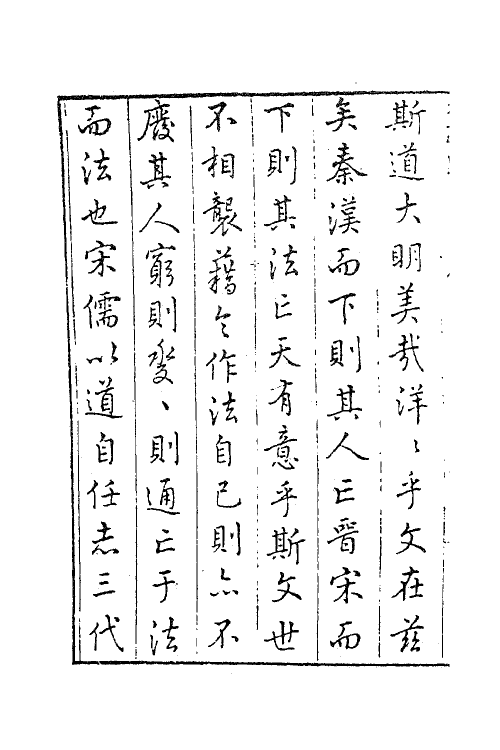 斯道大明美哉洋〻乎文在兹
矣秦漢而下則其人亡晉宋而
下則其法亡天有意乎斯文世
不相襲藉令作法自已則亦不
廢其人窮則変〻則通亡于法
而法也宋儒以道自任志三代